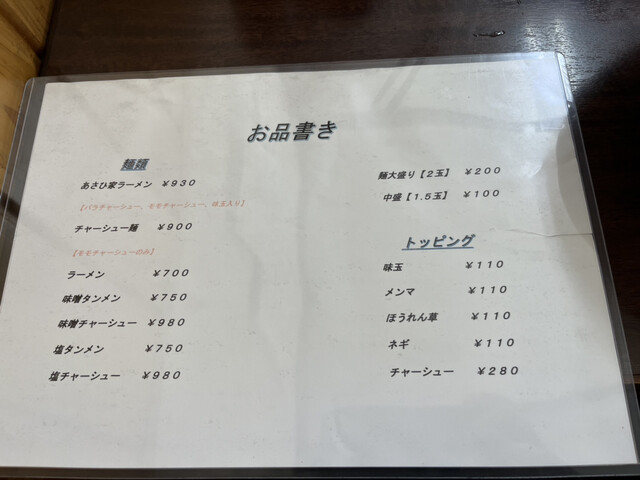 お品書き
麺類
あさひ家ラーメン ￥９３０
【バラチャーシュー、モモチャーシュー、味玉入り】
チャーシュー麺 ￥９００
【モモチャーシューのみ】
ラーメン ￥７００
味噌タンメン ￥７５０
味噌チャーシュー ￥９８０
塩タンメン ￥７５０
塩チャーシュー ￥９８０
麺大盛り【２玉】 ￥２００
中盛【１.５玉】 ￥１００
トッピング
味玉 ￥１１０
メンマ ￥１１０
ほうれん草 ￥１１０
ネギ ￥１１０
チャーシュー ￥２８０